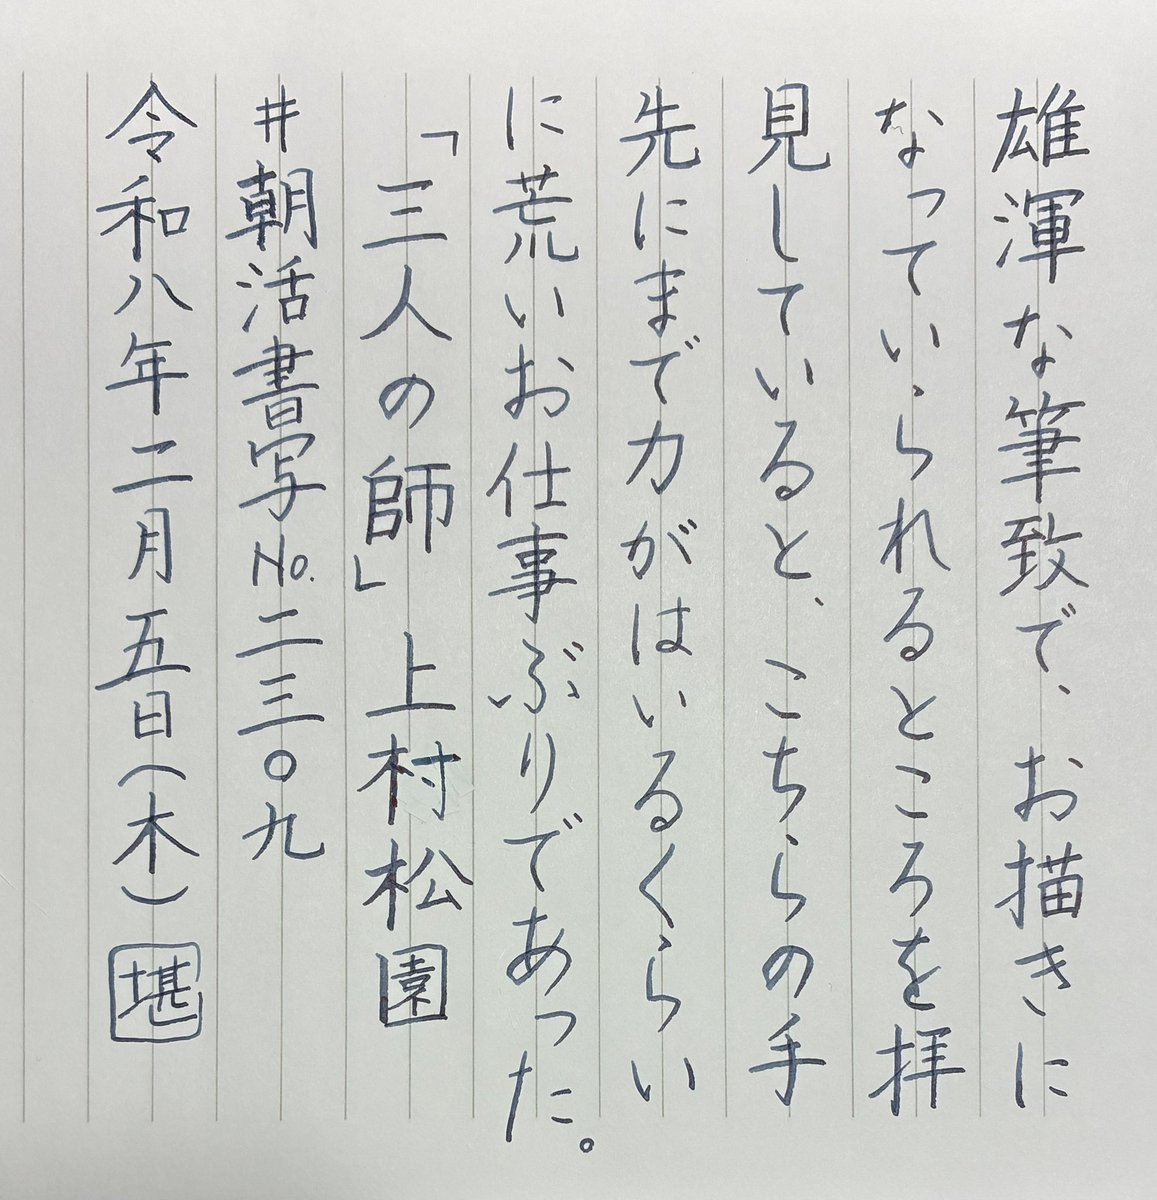 雄渾な筆致で、お描きに
なっていられるところを拝
見していると、こちらの手
先にまで力がはいるくらい
に荒いお仕事ぶりであった。
「三人の師」上村松園
#朝活書写No.二三〇九
令和八年二月五日(木)堪